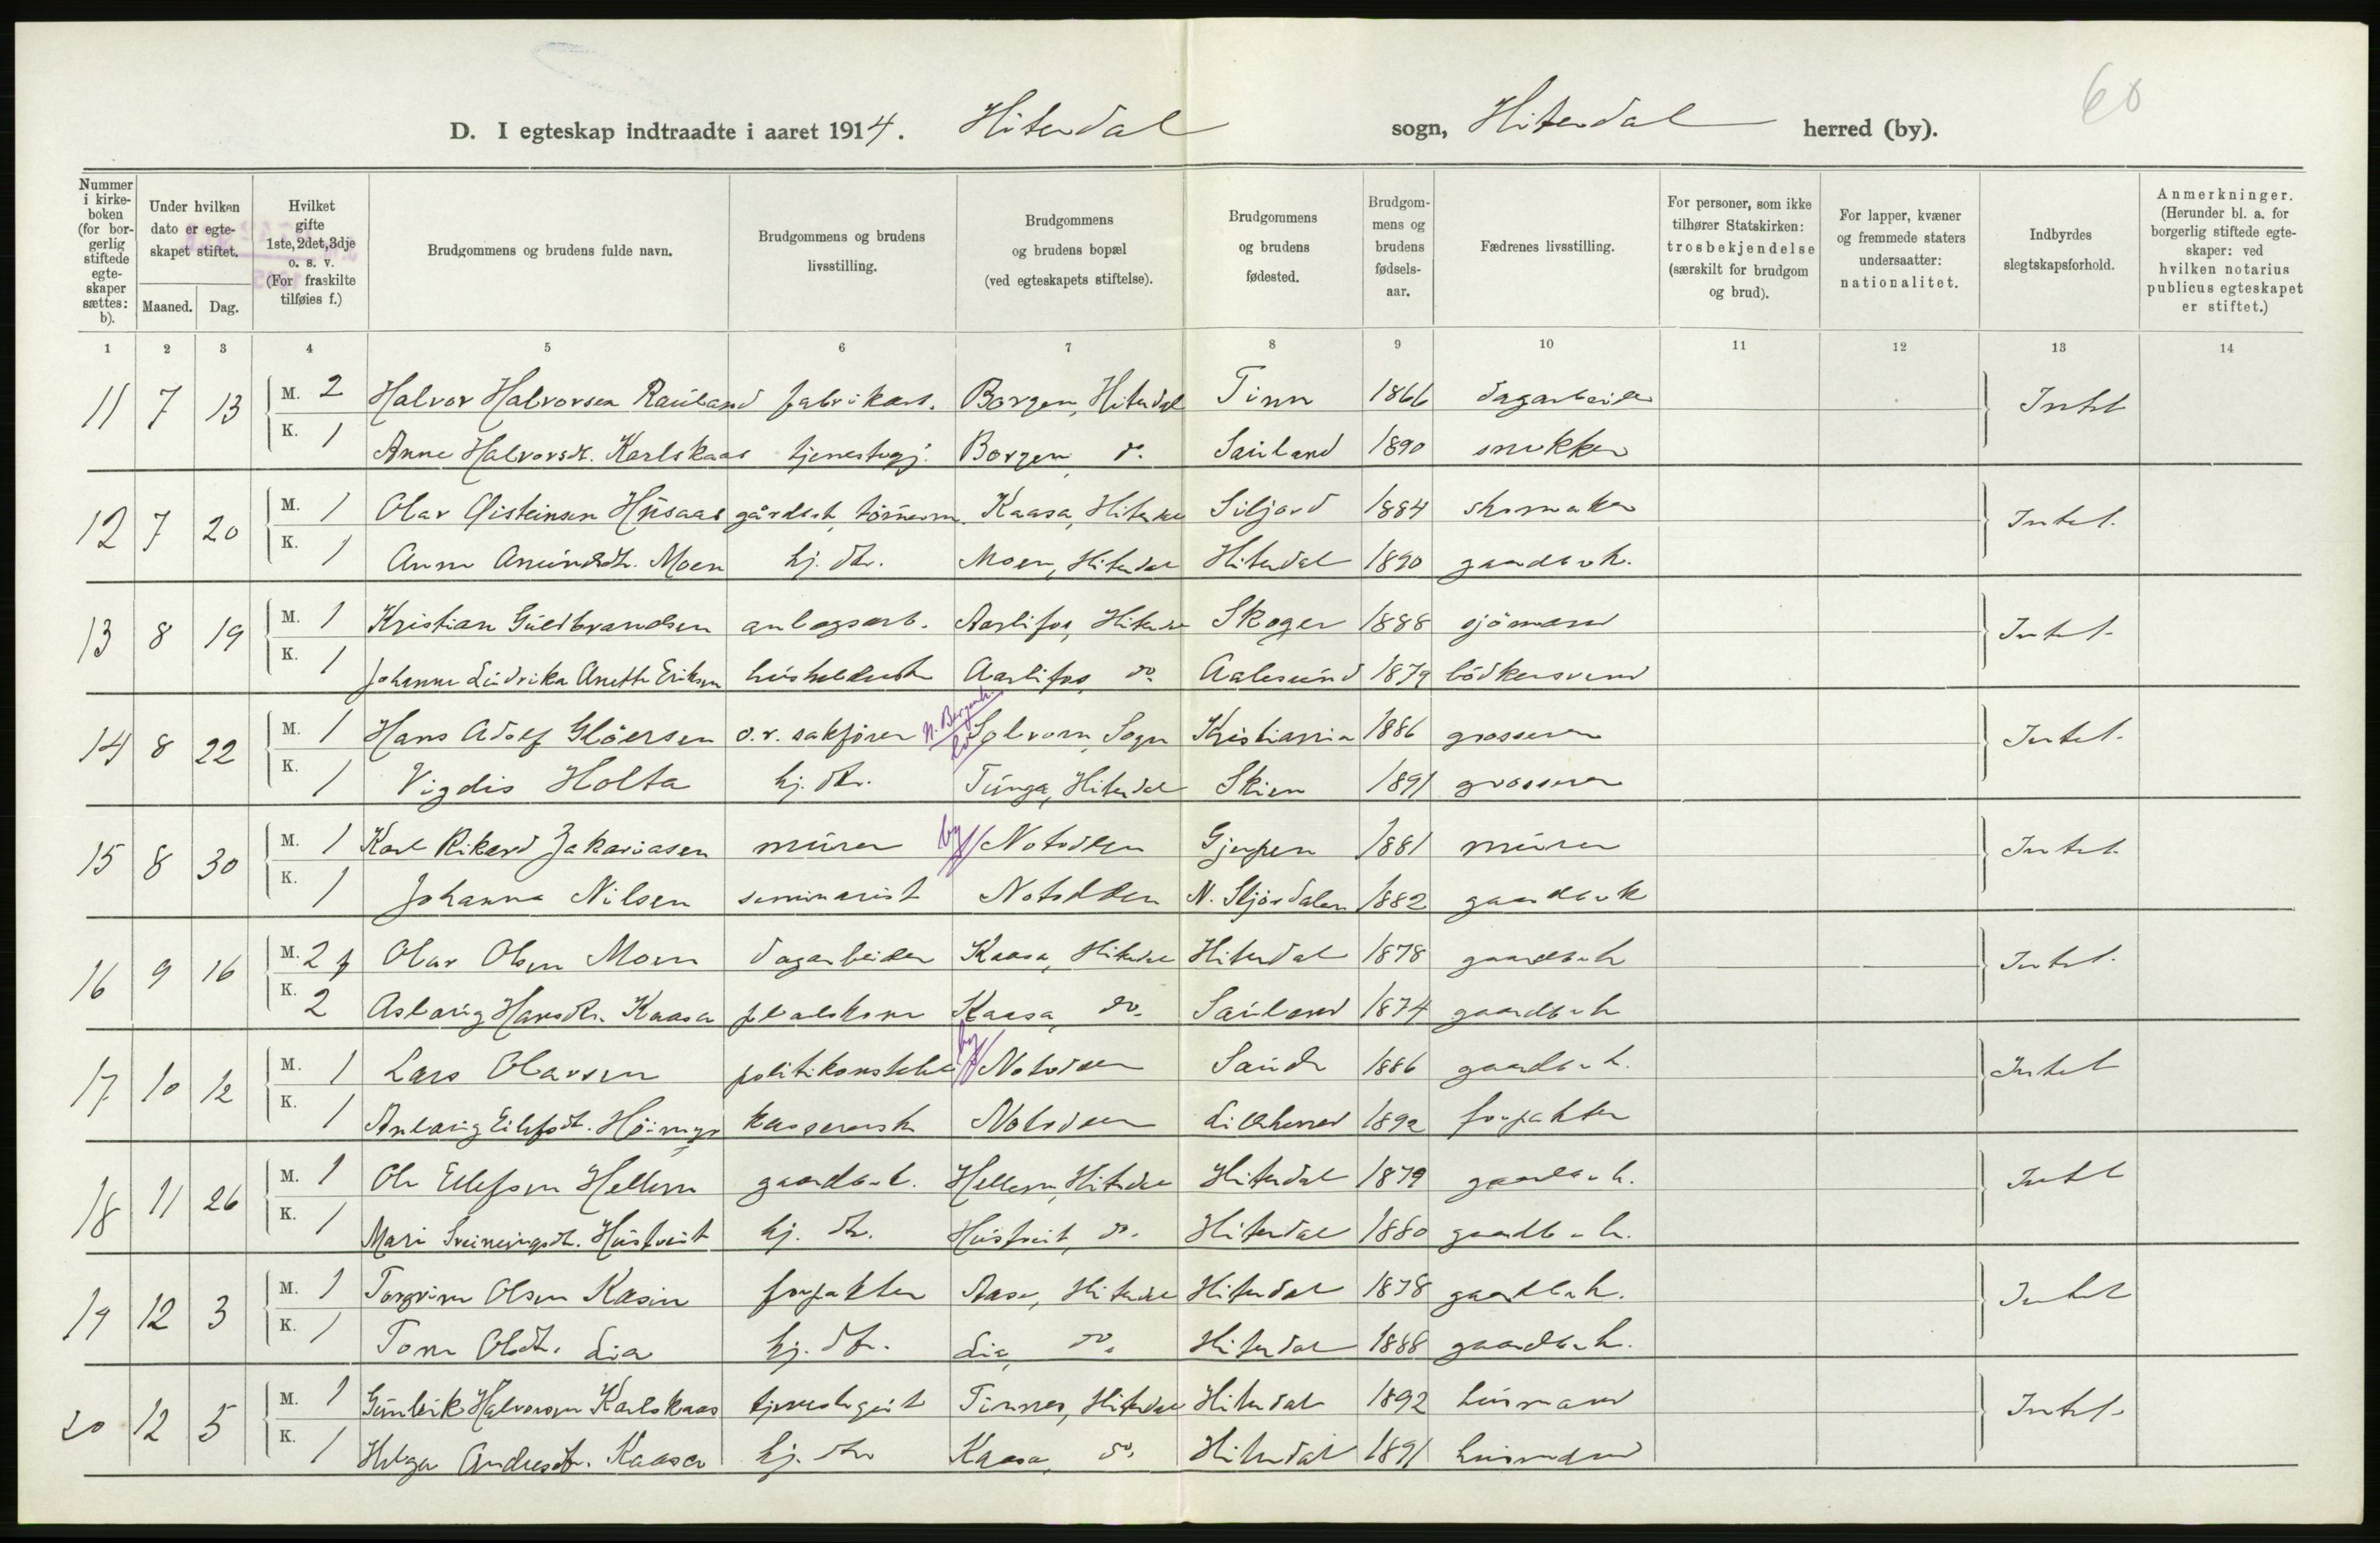 60
D. I egteskap indtraadte i aaret 1914. Hiterdal sogn, Hiterdal herred (by).
Nummer i kirke-boken (for bor-gerlig stiftede egte-skaper sættes: b).
Under hvilken dato er egte-skapet stiftet.
Maaned. Dag.
Hvilket gifte 1ste, 2det, 3dje o. s. v. (For fraskilte tilføies f.)
Brudgommens og brudens fulde navn.
Brudgommens og brudens livsstilling.
Brudgommens og brudens bopæl (ved egteskapets stiftelse).
Brudgommens og brudens fødested.
Brudgom-mens og brudens fødsels-aar.
Fædrenes livsstilling.
For personer, som ikke tilhører Statskirken: trosbekjendelse (særskilt for brudgom og brud).
For lapper, kvæner og fremmede staters undersaatter: nationalitet.
Indbyrdes slegtskapsforhold.
Anmerkninger. (Herunder bl. a. for borgerlig stiftede egte-skaper: ved hvilken notarius publicus egteskapet er stiftet.)
1 2 3 4 5 6 7 8 9 10 11 12 13 14
11 7 13 M. 2 Halvor Halvorsen Rauland fabrikarb. Borgen, Hiterdal Tinn 1866 dagarbeider Intet
K. 1 Anne Halvorsdt. Karlskaas tjenestepj. Borgen do. Sauland 1890 snekker
12 7 20 M. 1 Olav Øisteinsen Husaas Kaasa, Hiterdal Siljord 1884 skomaker Intet.
K. 1 Anne Amundsdt. Moen hj. dtr. Moen, Hiterdal Hiterdal 1890 gaardbruk.
13 8 19 M. 1 Kristian Guldbrandsen anlægsarb. Aarlifos, Hiterdal Skoger 1888 sjömand Intet.
K. 1 Johanne Ludvika Anette Eriksen husholderske Aarlifos do. Aalesund 1879 bödkersvend
14 8 22 M. 1 Hans Adolf Glöersen o.r. sakförer Solvorn, Sogn Kristiania 1886 grosserer Intet.
K. 1 Vigdis Holta hj. dtr. Tunga, Hiterdal Skien 1891 grosserer
15 8 30 M. 1 Karl Rikard Zakariasen murer by Notodden Gjerpen 1881 murer Intet.
K. 1 Johanna Nilsen seminarist Notodden N. Stjørdalen 1882 gaardbruk
16 9 16 M. 2 f Olav Olsen Moen dagarbeider Kaasa, Hiterdal Hiterdal 1878 gaardbruk Intet.
K. 2 Aslaug Hansdtr. Kaasa Kaasa, do. Sauland 1874 gaardbruk
17 10 12 M. 1 Lars Olavsen politikonstabel by Notodden Saude 1886 gaardbruk. Intet
K. 1 Aslaug Eilefsdt. kassererske Notodden Lilleherred 1892 forpakter
18 11 26 M. 1 Ole Ellefsen Hellem gaardbruk. Hellem, Hiterdal Hiterdal 1879 gaardbruk. Intet
K. 1 Mari Sveinungsdt. Hustveit hj. dtr. Hustveit, do. Hiterdal 1880 gaardbruk.
19 12 3 M. 1 Torgrim Olsen Kasin forpakter Aase, Hiterdal Hiterdal 1878 gaardbruk. Intet
K. 1 Tone Olsdt. Lia hj. dtr. Lia, do. Hiterdal 1888 gaardbruk.
20 12 5 M. 1 Gunleik Halvorsen Karlskaas tjenestegut Tinnes, Hiterdal Hiterdal 1892 husmand Intet.
K. 1 Helga Andresdt. Kaasa hj. dtr Kaasa, do. Hiterdal 1891 husmand